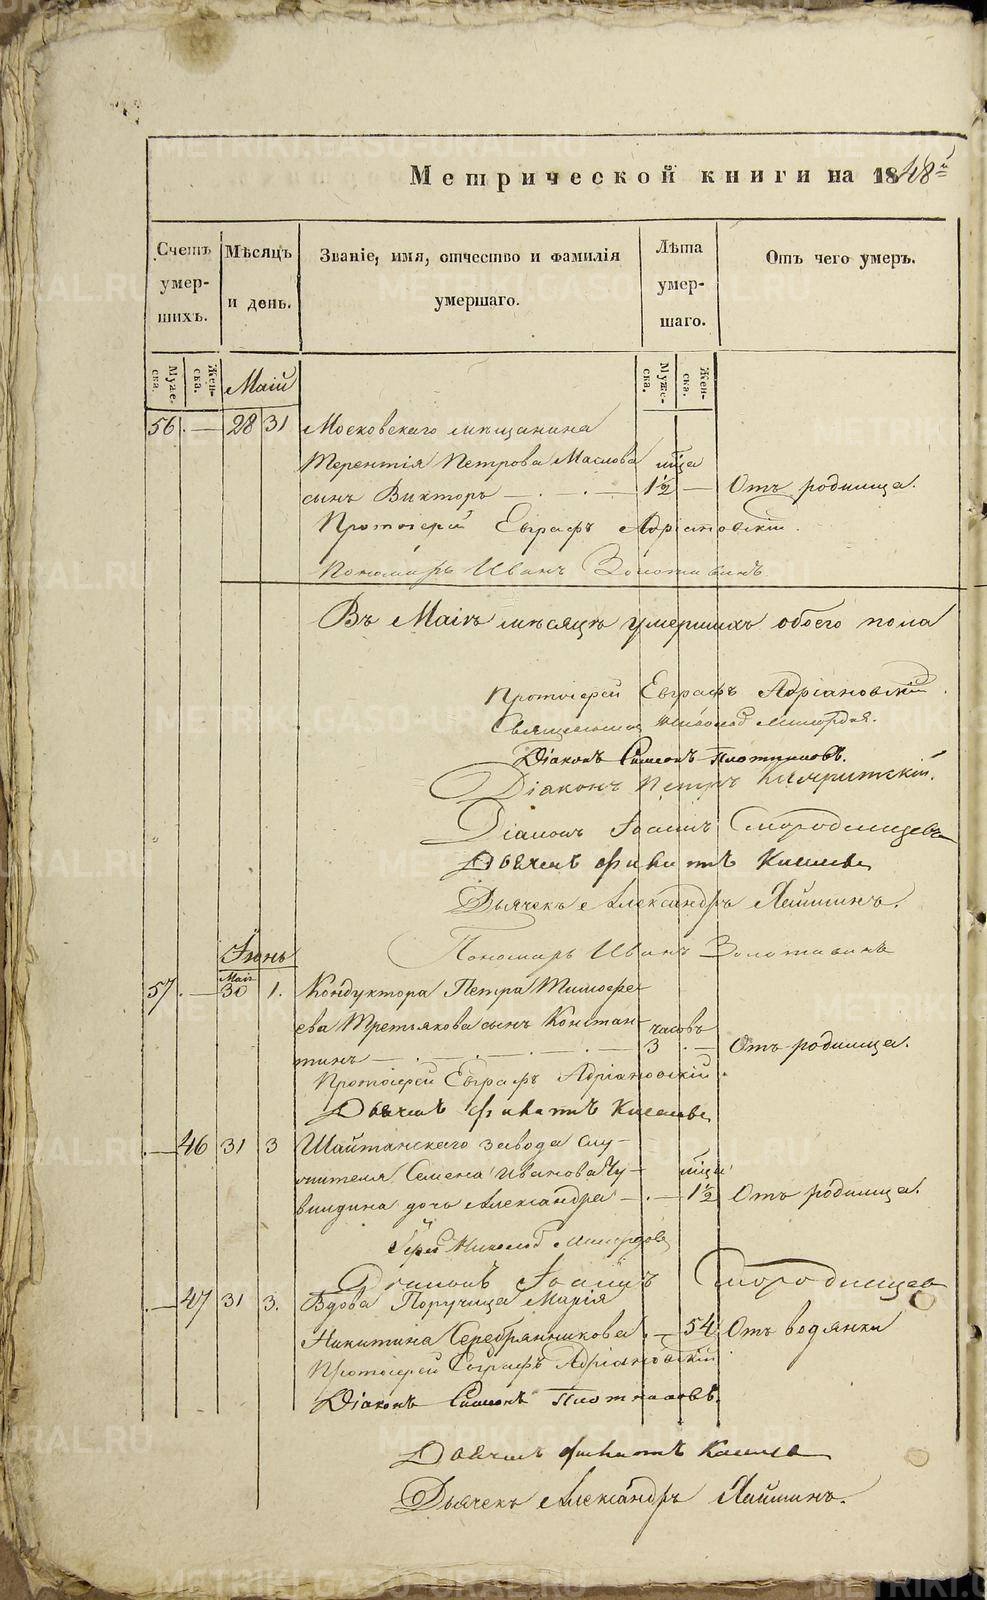 Метрической книги на 1848 г.
Счетъ умершихъ.
Мѣсяцъ и день.
Званіе, имя, отчество и фамилія умершаго.
Лѣта умершаго.
Отъ чего умеръ.
Мужеска.
Женска.
Маій
Мужеска.
Женска.
56 — 28 31 Московскаго мѣщанина
Терентія Петрова Маслова мца
сынъ Викторъ — 1½ — Отъ родимца.
Протоіерей Евграфъ Адріановскій.
Пономарь Иванъ Золотавинъ
Въ Маіѣ мѣсяцѣ умершихъ обоего пола
Протоіерей Евграфъ Адріановскій.
Священникъ Николай
Діаконъ Симеонъ Плотниковъ.
Діаконъ Петръ
Діаконъ Іоаннъ Смородинцевъ
Дьячекъ Киселевъ
Дьячекъ Александръ Ляпустинъ.
Пономарь Иванъ Золотавинъ
Іюнь
Маія
57 — 30 1. Кондуктора Петра Тимофе-
ева Третьякова сынъ Констан- часовъ
тинъ — 3 — Отъ родимца.
Протоіерей Евграфъ Адріановскій.
Дьячекъ Киселевъ
— 46 31 3 Шайтанскаго завода слу-
Семена Иванова Чу- мца
дочь Александра — 1½ Отъ родимца.
Іерей Николай
Діаконъ Іоаннъ Смородинцевъ
— 47 31 3. Вдова Поручица Марія
Никитина Серебрянникова — 54 Отъ водянки
Протоіерей Евграфъ Адріановскій
Діаконъ Симеонъ Плотниковъ.
Дьячекъ Киселевъ
Дьячекъ Александръ
METRIKI.GASO-URAL.RU